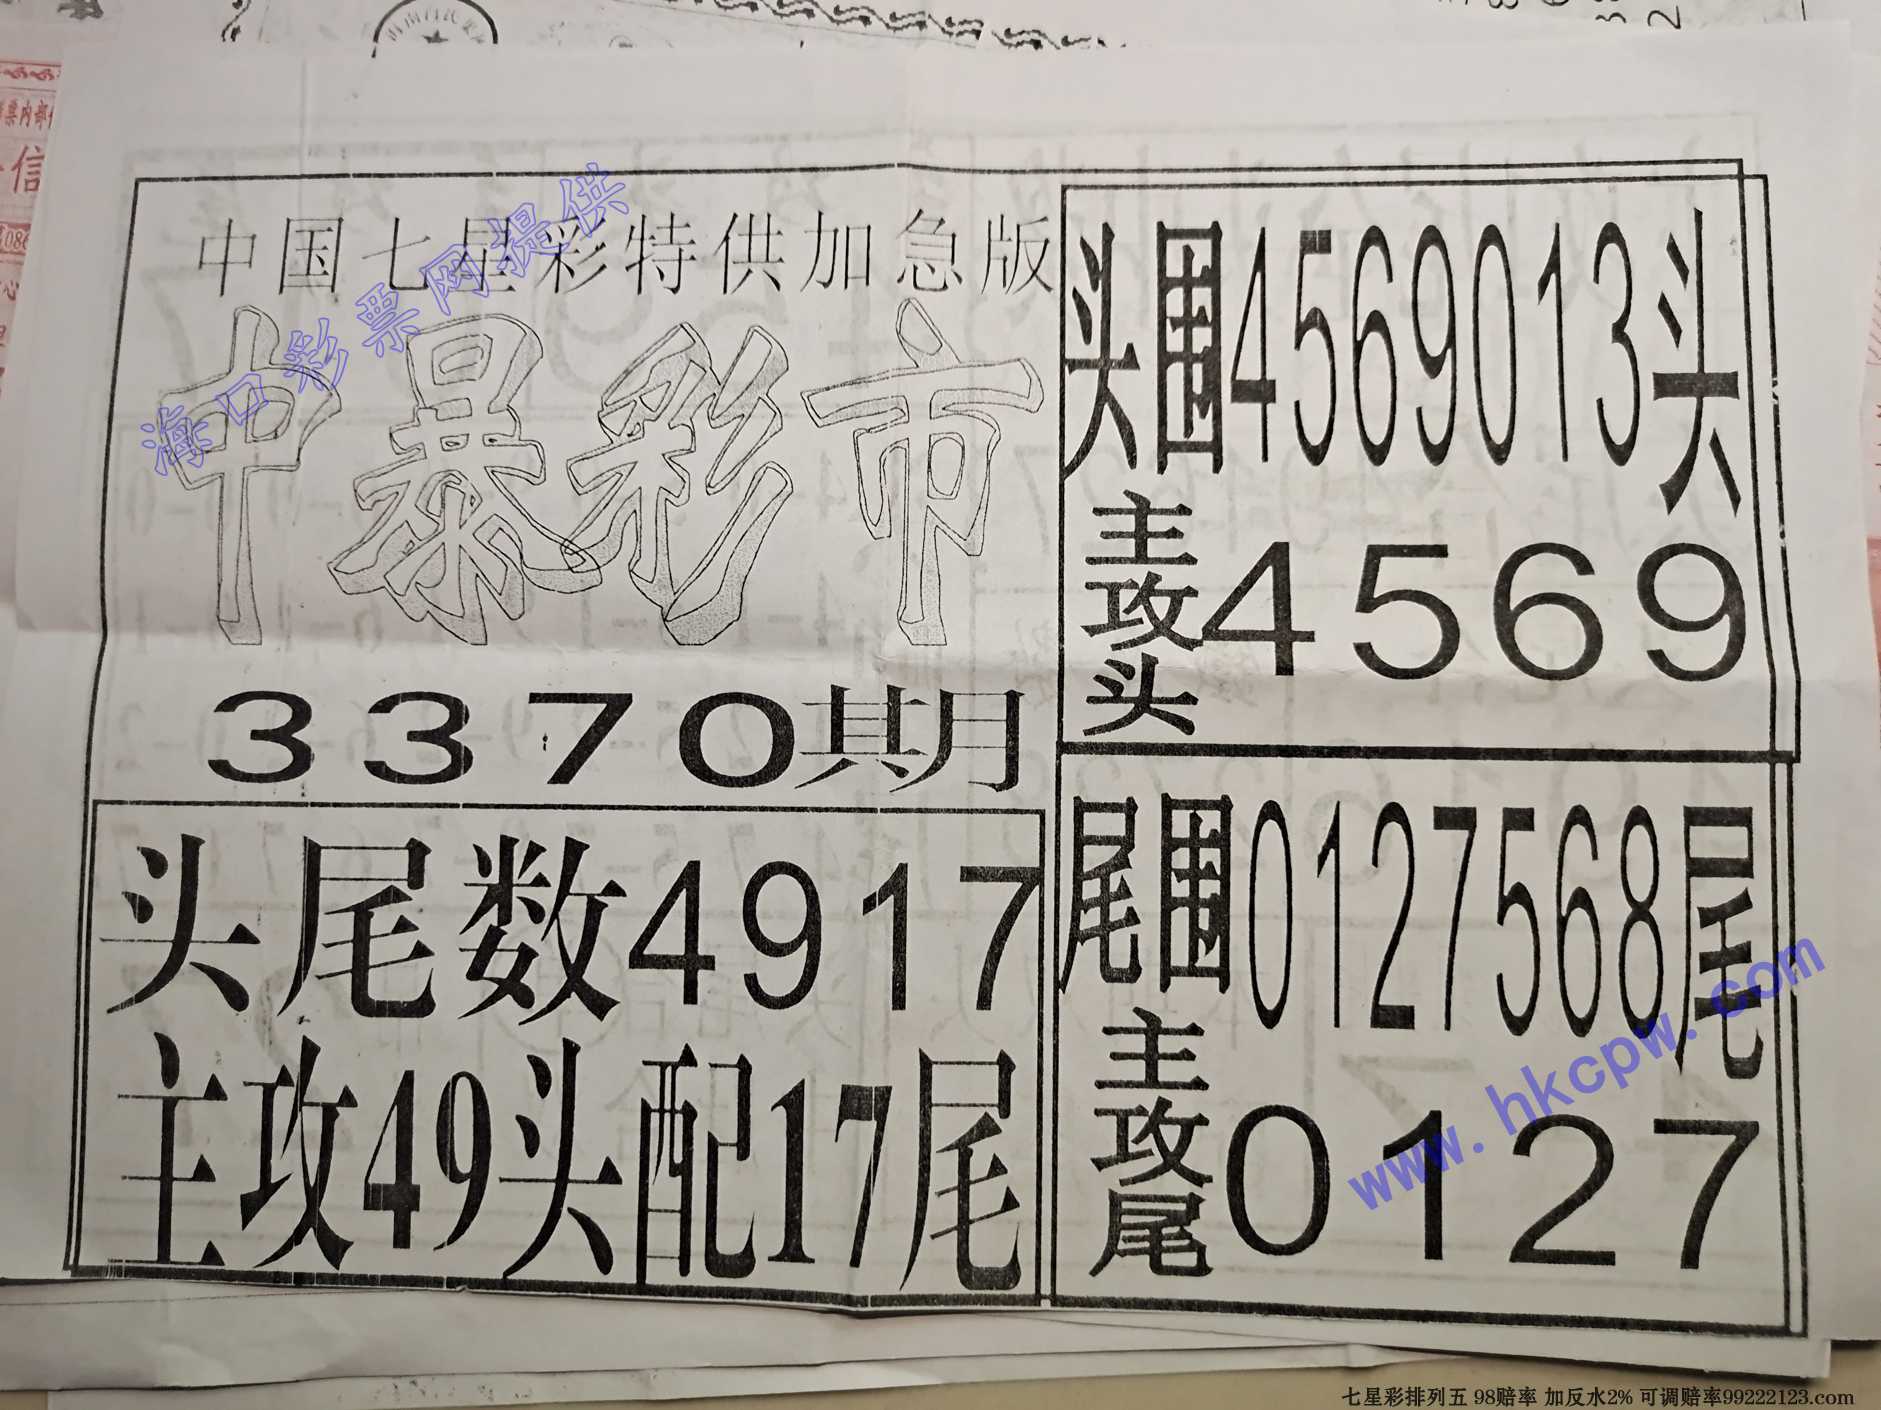 中国七星彩特供加急版
中暴彩市
3370期
头尾数4917
主攻49头配17尾
头围4569013头
主攻头4569
尾围0127568尾
主攻尾0127
海口彩票网提供
www.hkcpw.com
七星彩排列五 98赔率 加反水2% 可调赔率99222123.com
票内部
信